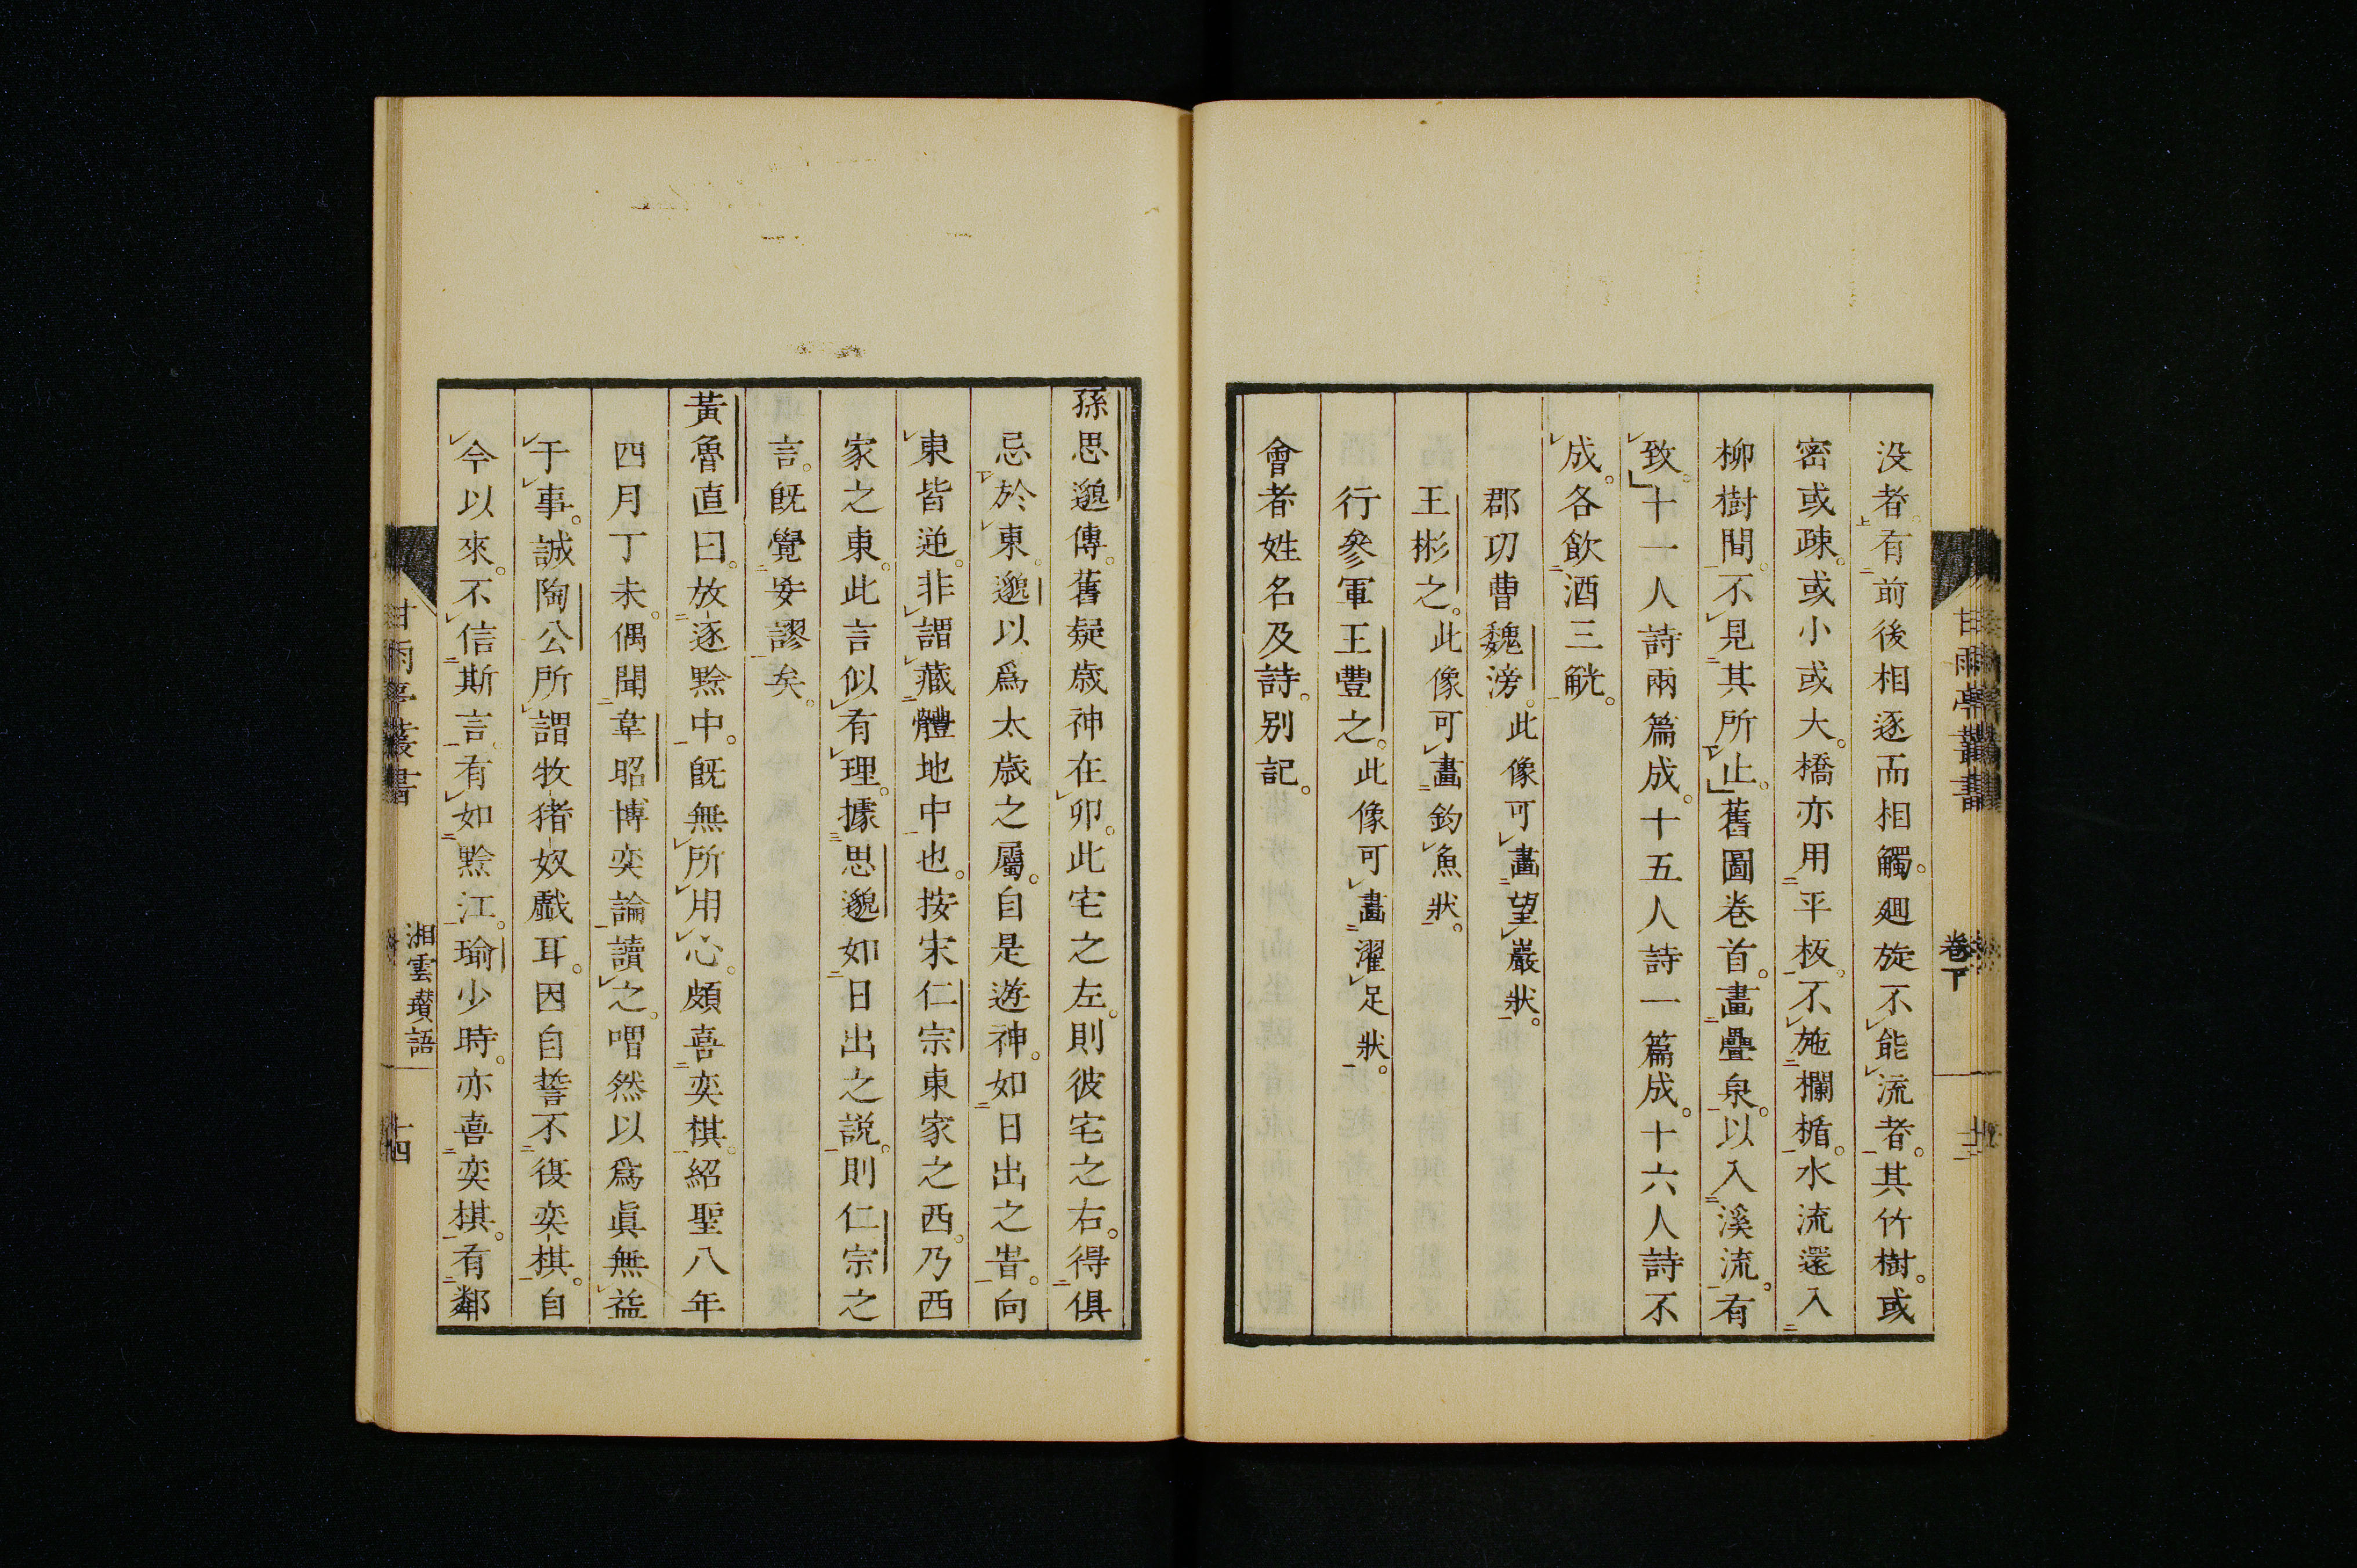 没者有前後相逐而相觸。廻旋不能流者。其竹樹。或
密或疎。或小或大。橋亦用平板。不施欄楯。水流還入
柳樹間。不見其所止。」舊圖卷首。畫疊泉。以入溪流。有
致。」十一人詩兩篇成。十五人詩一篇成。十六人詩不
成。各飲酒三觥。
郡功曹魏滂。此像可畫望巖狀。
王彬之。此像可畫釣魚狀。
行參軍王豐之。此像可畫濯足狀。
會者姓名及詩。別記。
甘雨亭叢書
卷下
孫思邈傳。舊疑歲神在卯。此宅之左。則彼宅之右。得俱
忌於東。邈以爲太歲之屬。自是遊神。如日出之旹。向
東皆逆。非謂藏體地中也。按宋仁宗東家之西。乃西
家之東。此言似有理。據思邈如日出之説。則仁宗之
言。旣覺妄謬矣。
黃魯直曰。放逐黔中。旣無所用心。頗喜奕棋。紹聖八年
四月丁未。偶聞韋昭博奕論讀之。喟然以爲眞無益
于事。誠陶公所謂牧猪奴戲耳。因自誓不復奕棋。自
今以來。不信斯言。有如黔江。瑜少時。亦喜奕棋。有鄰
甘雨亭叢書
湘雲瓚語
十四